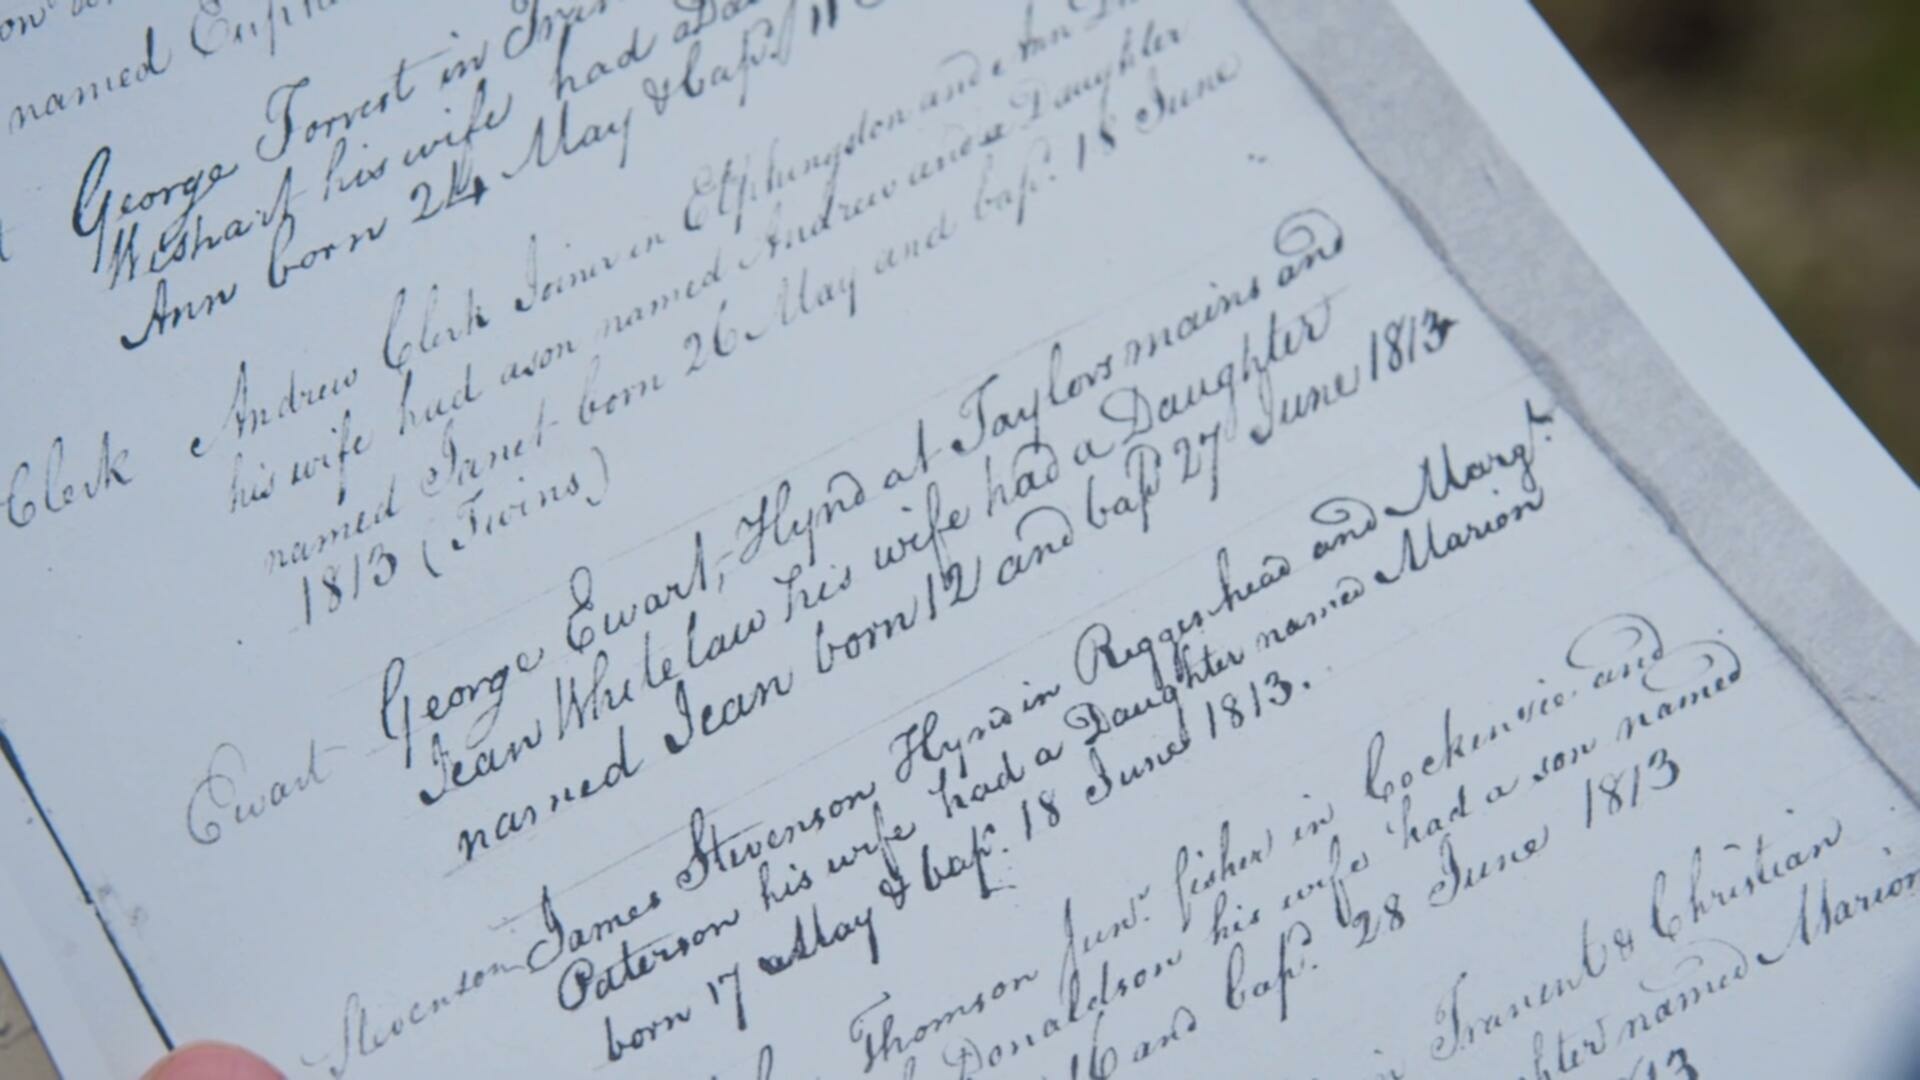 named
George Forrest in
Weshart his wife had
Ann born 24 May & bap.
Clerk Andrew Clerk Joiner in Elphingston and Ann
his wife had a son named Andrew and a Daughter
named Janet born 26 May and bap. 18 June
1813 (Twins)
Ewart George Ewart, Hynd at Taylors mains and
Jean Whitelaw his wife had a Daughter
named Jean born 12 and bap 27 June 1813
Stevenson James Stevenson Hynd in Riggenhead and Margt.
Paterson his wife had a Daughter named Marion
born 17 May & bap. 18 June 1813.
Thomson Junr. fisher in Cockenzie and
Donaldson his wife had a son named
16 and bap. 28 June 1813
Tranent & Christian
named Marion
13